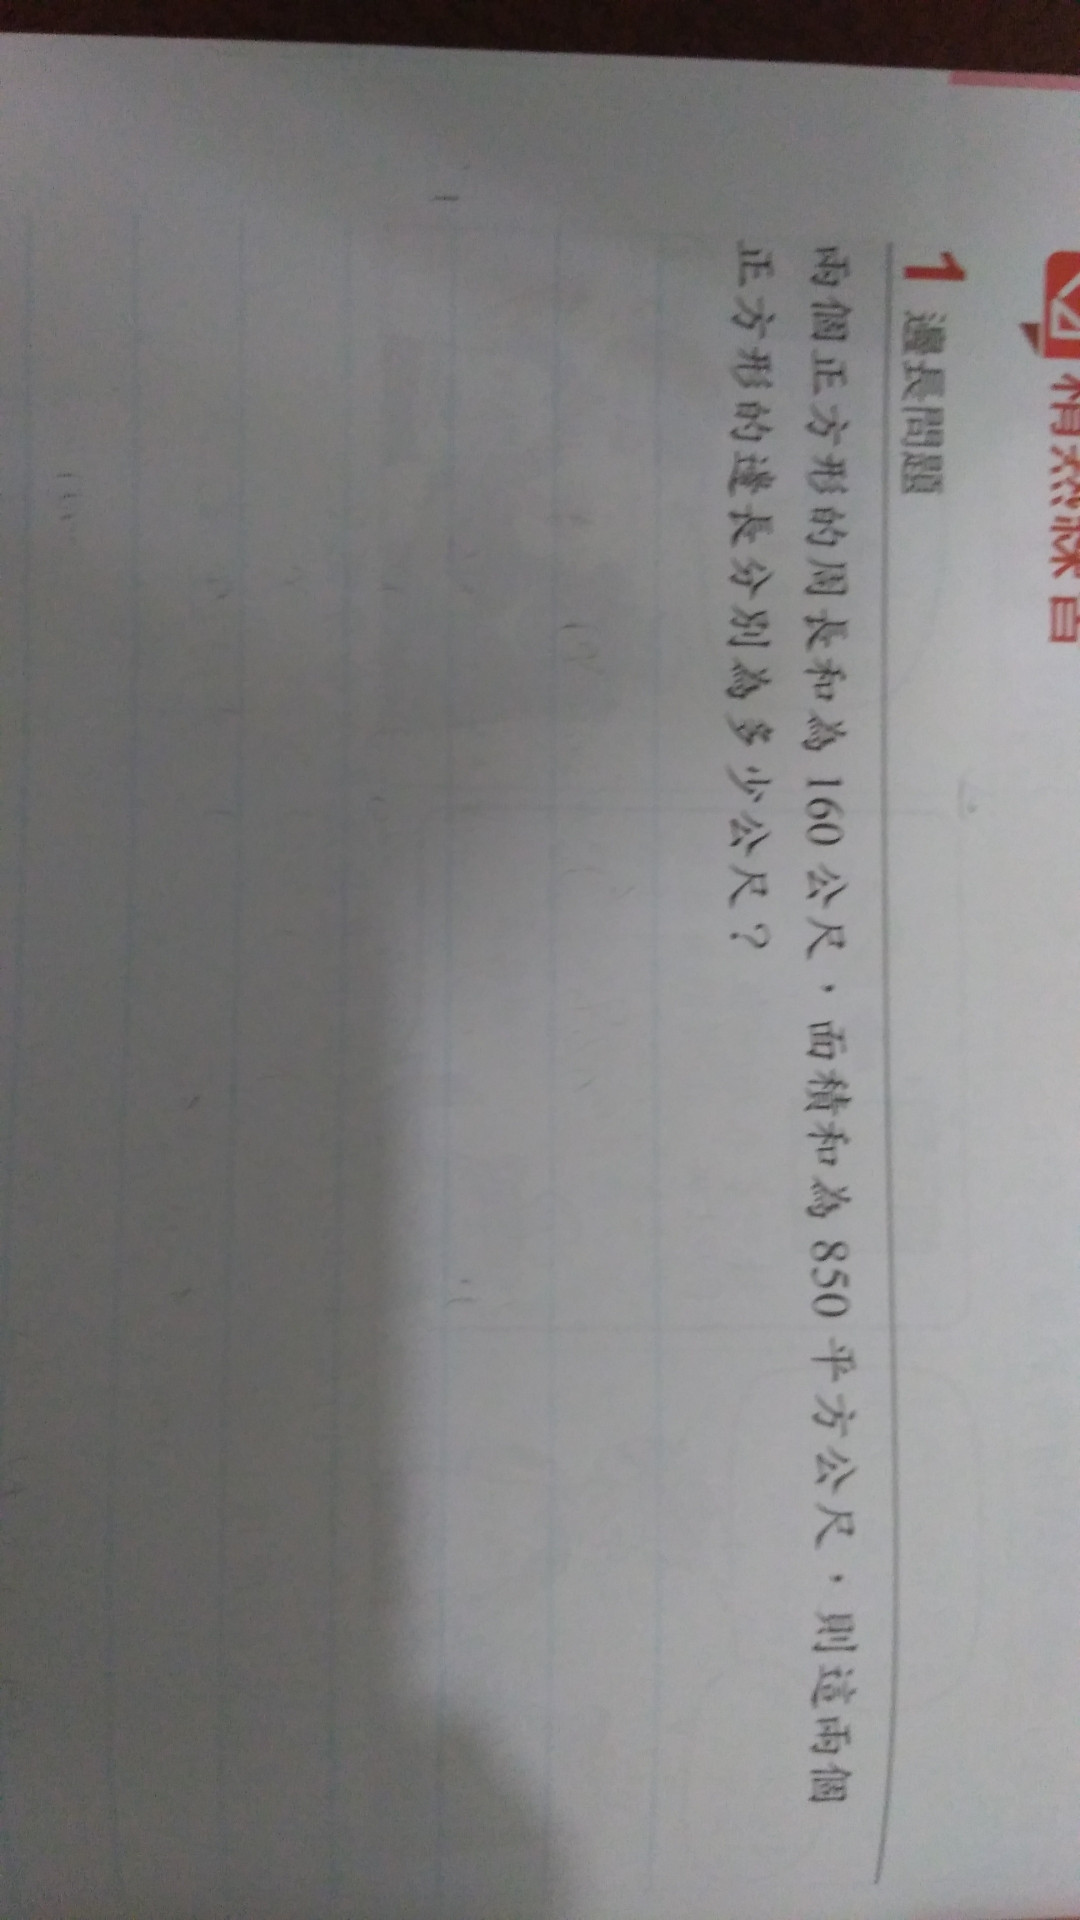 1 邊長問題
兩個正方形的周長和為 160 公尺，面積和為 850 平方公尺，則這兩個
正方形的邊長分別為多少公尺？